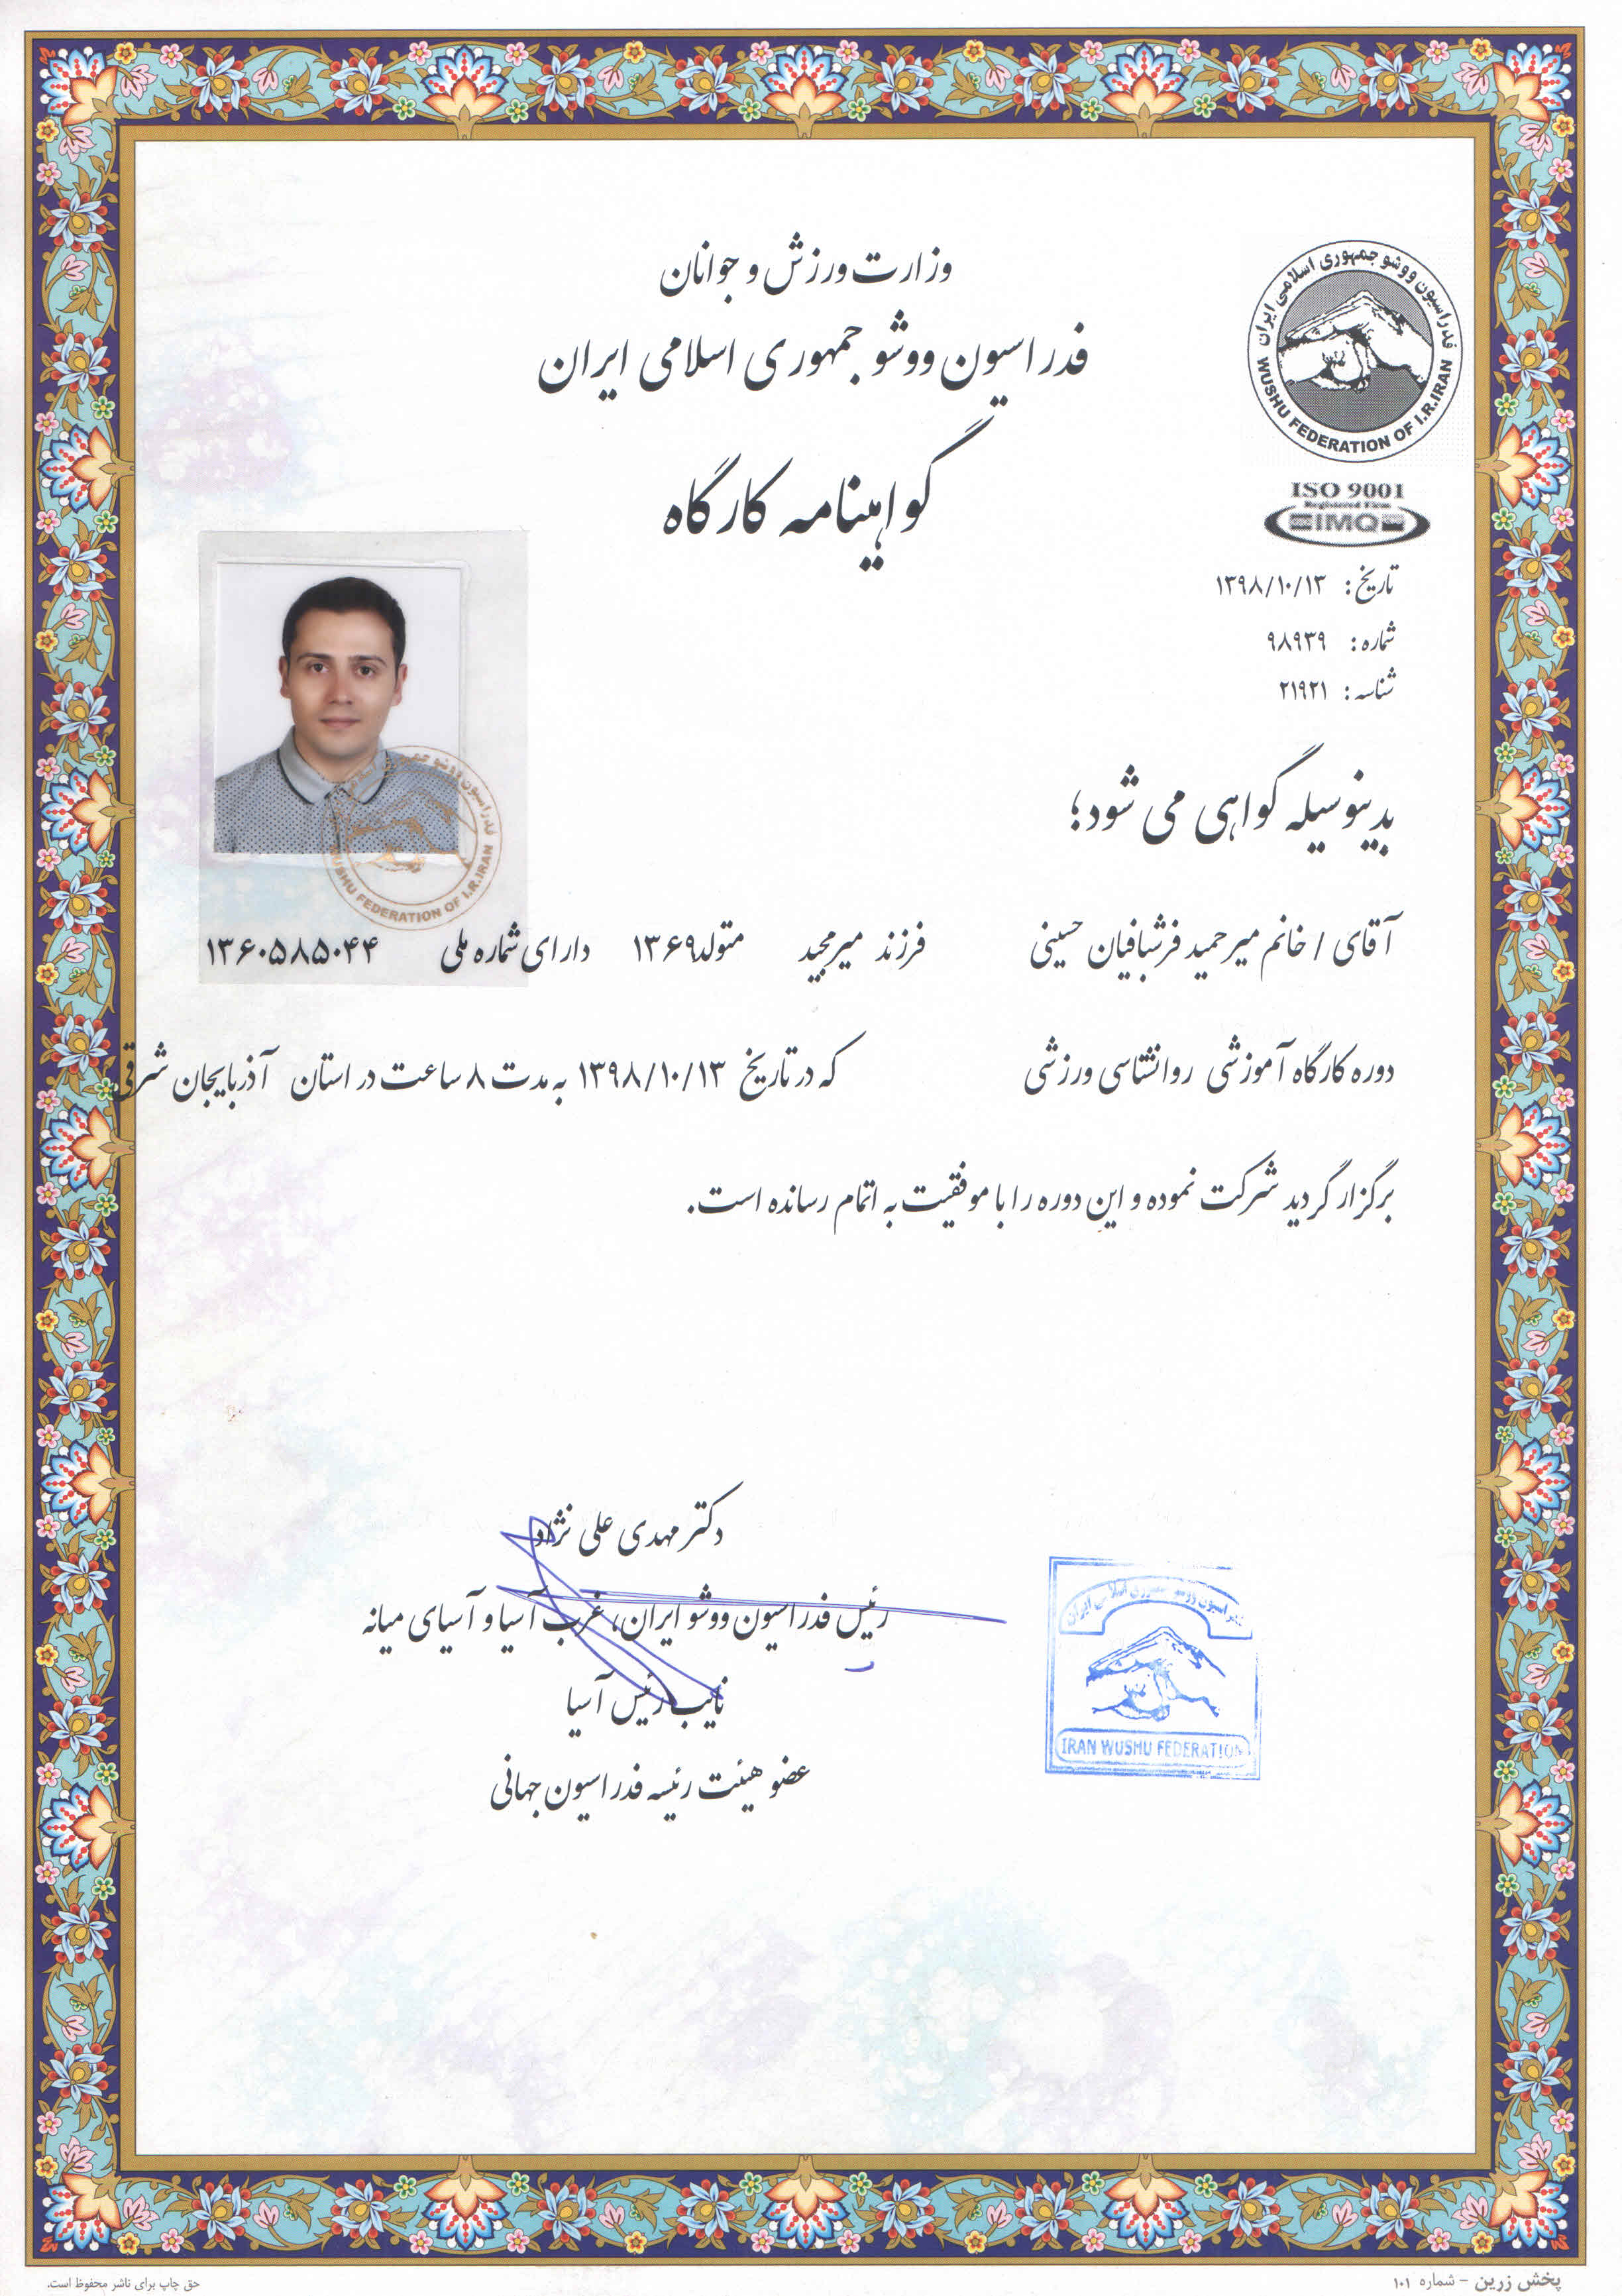 وزارت ورزش و جوانان
فدراسیون ووشو جمهوری اسلامی ایران
گواهینامه کارگاه
فدراسیون ووشو جمهوری اسلامی ایران
WUSHU FEDERATION OF I.R.IRAN
ISO 9001
Registered Firm
IMQ
تاریخ: ۱۳۹۸/۱۰/۱۳
شماره: ۹۸۹۳۹
شناسه: ۲۱۹۲۱
WUSHU FEDERATION OF I.R.IRAN
بدینوسیله گواهی می شود؛
آقای / خانم میرحمید فرشبافیان حسینی فرزند میرمجید متولد ۱۳۶۹ دارای شماره ملی ۱۳۶۰۵۸۵۰۴۴
دوره کارگاه آموزشی روانشناسی ورزشی که در تاریخ ۱۳۹۸/۱۰/۱۳ به مدت ۸ ساعت در استان آذربایجان شرقی
برگزار گردید شرکت نموده و این دوره را با موفقیت به اتمام رسانده است.
دکتر مهدی علی نژاد
رئیس فدراسیون ووشو ایران، غرب آسیا و آسیای میانه
نایب رئیس آسیا
عضو هیئت رئیسه فدراسیون جهانی
فدراسیون ووشو جمهوری اسلامی ایران
IRAN WUSHU FEDERATION
پخش زرین - شماره ۱۰۱
حق چاپ برای ناشر محفوظ است.